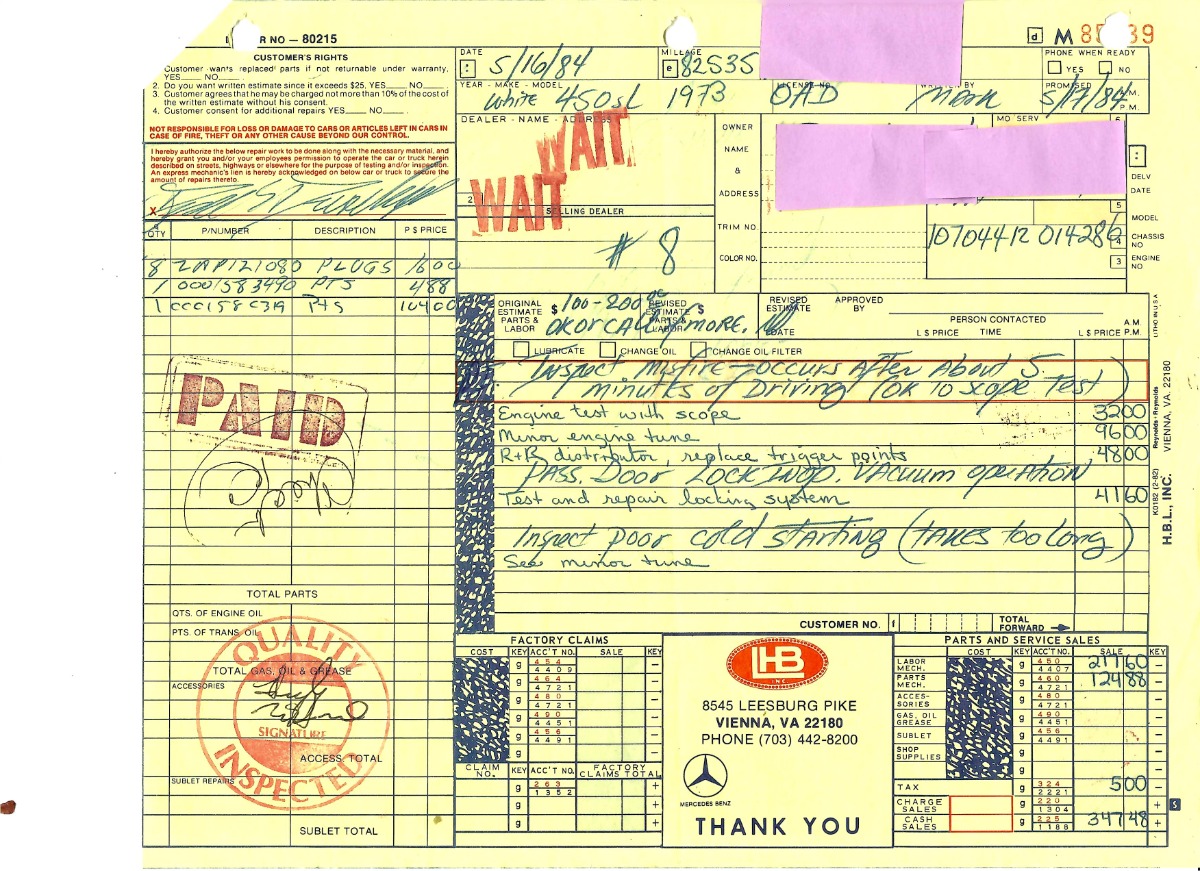 R NO — 80215
CUSTOMER'S RIGHTS
Customer wants replaced parts if not returnable under warranty,
YES___ NO___
2. Do you want written estimate since it exceeds $25, YES___ NO___
3. Customer agrees that he may be charged not more than 10% of the cost of
the written estimate without his consent.
4. Customer consent for additional repairs YES___ NO___
NOT RESPONSIBLE FOR LOSS OR DAMAGE TO CARS OR ARTICLES LEFT IN CARS IN
CASE OF FIRE, THEFT OR ANY OTHER CAUSE BEYOND OUR CONTROL.
I hereby authorize the below repair work to be done along with the necessary material, and
hereby grant you and/or your employees permission to operate the car or truck herein
described on streets, highways or elsewhere for the purpose of testing and/or inspection.
An express mechanic's lien is hereby acknowledged on below car or truck to secure the
amount of repairs thereto.
X
DATE
5/16/84
MILEAGE
e 82535
d M 85 39
PHONE WHEN READY
YES NO
YEAR - MAKE - MODEL
White 450SL 1973
LICENSE NO
OAD
WRITTEN BY
Mark
PROMISED
5/17/84
A.M.
P.M.
DEALER - NAME - ADDRESS
WAIT
WAIT
2
SELLING DEALER
# 8
OWNER
NAME
&
ADDRESS
TRIM NO.
COLOR NO.
MO SERV
DELV
DATE
5
MODEL
10704412 014286
4
CHASSIS
NO
3
ENGINE
NO
QTY P/NUMBER DESCRIPTION P S PRICE
8 PLUGS 16 00
1 0001583490 PTS 4 88
1 PTS 104 00
PAID
ORIGINAL
ESTIMATE
PARTS &
LABOR
$ 100-200
REVISED
ESTIMATE
PARTS &
LABOR
$
OK OR CALL IF MORE.
REVISED
ESTIMATE
DATE
APPROVED
BY
PERSON CONTACTED
L $ PRICE TIME
A.M.
L $ PRICE P.M.
LUBRICATE CHANGE OIL CHANGE OIL FILTER
Inspect Misfire — occurs After About 5
minutes of Driving (OK TO Scope Test)
Engine test with scope 32 00
Minor engine tune 96 00
R+R distributor, replace trigger points 48 00
PASS. Door Lock INOP. Vacuum operation
Test and repair locking system 41 60
Inspect Poor cold starting (takes too long)
See minor tune
LITHO IN U.S.A.
Reynolds + Reynolds
K0182 (2-82)
H.B.L., INC. VIENNA, VA. 22180
TOTAL PARTS
QTS. OF ENGINE OIL
PTS. OF TRANS. OIL
TOTAL GAS, OIL & GREASE
ACCESSORIES
ACCESS. TOTAL
SUBLET REPAIRS
SUBLET TOTAL
QUALITY
SIGNATURE
INSPECTED
CUSTOMER NO.
TOTAL
FORWARD
FACTORY CLAIMS
COST KEY ACC'T NO. SALE KEY
g 454 4409 —
g 464 4721 —
g 480 4721 —
g 490 4451 —
g 456 4491 —
g —
CLAIM
NO.
KEY ACC'T NO.
FACTORY
CLAIMS TOTAL
g 263 1352 +
g +
g +
HB
INC
8545 LEESBURG PIKE
VIENNA, VA 22180
PHONE (703) 442-8200
MERCEDES BENZ
THANK YOU
PARTS AND SERVICE SALES
COST KEY ACC'T NO. SALE KEY
LABOR MECH. g 450 4407 217 60 —
PARTS MECH. g 460 4721 124 88 —
ACCESSORIES g 480 4721 —
GAS, OIL GREASE g 490 4451 —
SUBLET g 456 4491 —
SHOP SUPPLIES g —
g —
TAX g 324 2221 5 00 —
CHARGE SALES g 220 1304 + S
CASH SALES g 225 1188 347 48 +